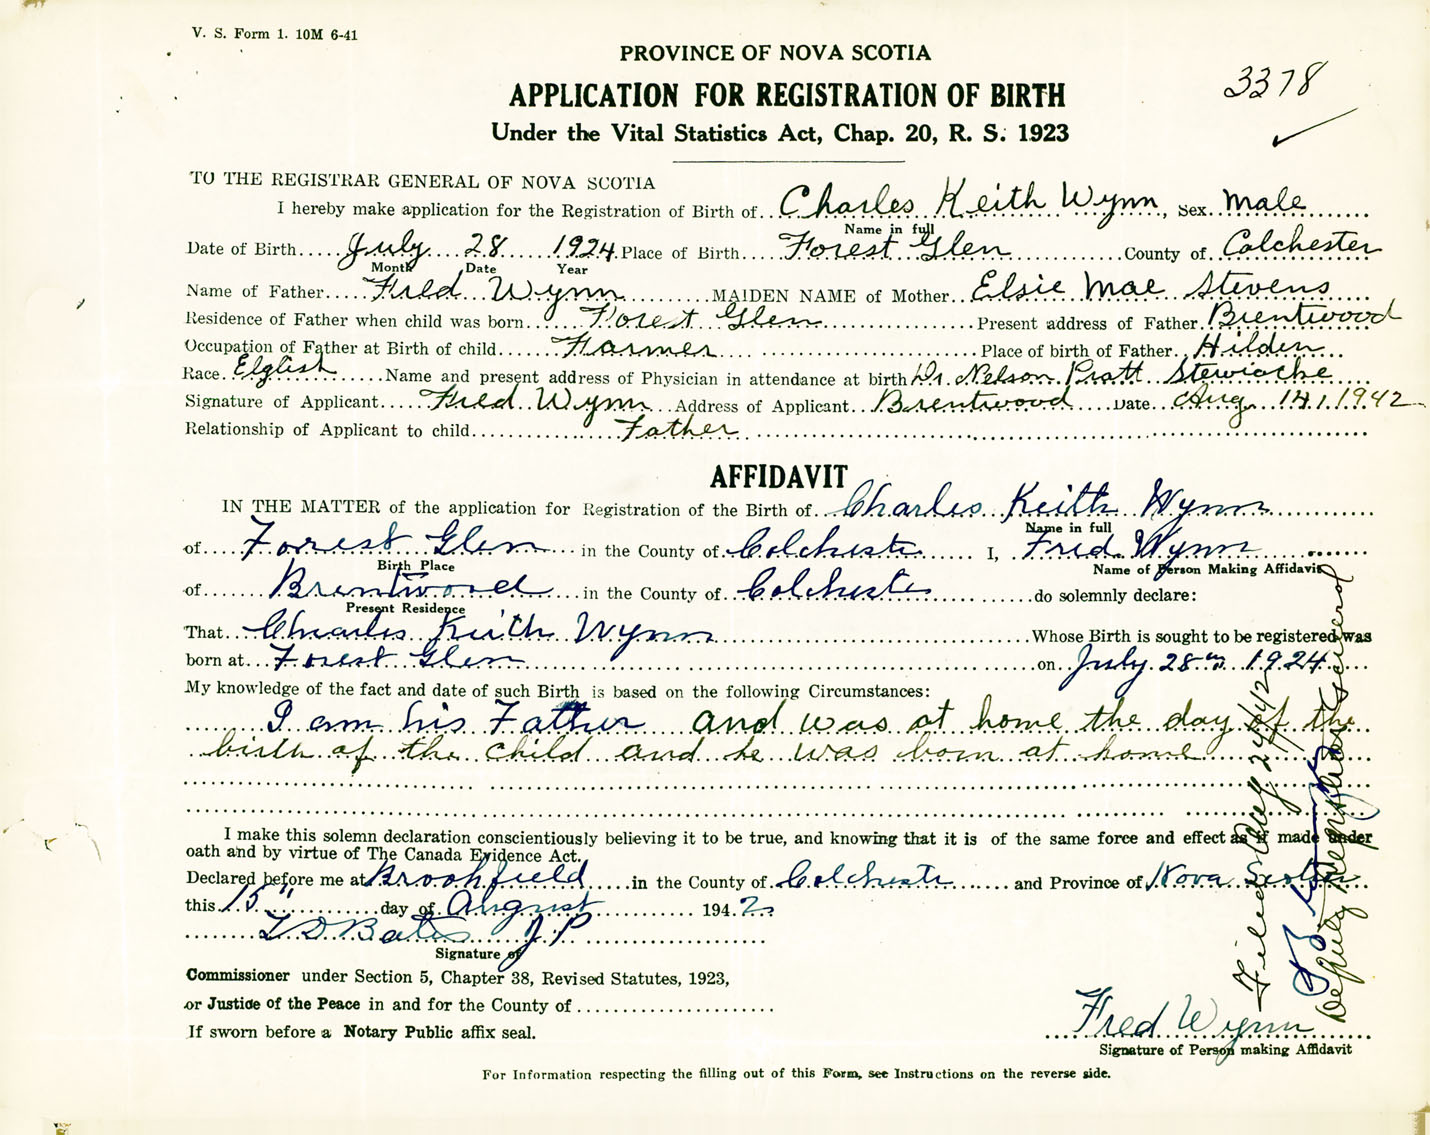 V. S. Form 1. 10M 6-41
PROVINCE OF NOVA SCOTIA
3378
APPLICATION FOR REGISTRATION OF BIRTH
Under the Vital Statistics Act, Chap. 20, R. S. 1923
TO THE REGISTRAR GENERAL OF NOVA SCOTIA
I hereby make application for the Registration of Birth of Charles Keith Wynn, Sex Male
Name in full
Date of Birth July 28 1924 Place of Birth Forest Glen County of Colchester
Month Date Year
Name of Father Fred Wynn MAIDEN NAME of Mother Elsie Mae Stevens
Residence of Father when child was born Forest Glen Present address of Father Brentwood
Occupation of Father at Birth of child Farmer Place of birth of Father Hilden
Race Elglish Name and present address of Physician in attendance at birth Dr. Nelson Pratt Stewiacke
Signature of Applicant Fred Wynn Address of Applicant Brentwood Date Aug 14, 1942
Relationship of Applicant to child Father
AFFIDAVIT
IN THE MATTER of the application for Registration of the Birth of Charles Keith Wynn
Name in full
of Forest Glen in the County of Colchester I, Fred Wynn
Birth Place Name of Person Making Affidavit
of Brentwood in the County of Colchester do solemnly declare:
Present Residence
That Charles Keith Wynn Whose Birth is sought to be registered was
born at Forest Glen on July 28th 1924
My knowledge of the fact and date of such Birth is based on the following Circumstances:
I am his Father and was at home the day of the
birth of the child and he was born at home
I make this solemn declaration conscientiously believing it to be true, and knowing that it is of the same force and effect as if made under
oath and by virtue of The Canada Evidence Act.
Declared before me at Brookfield in the County of Colchester and Province of Nova Scotia
this 15" day of August 1942
L D Bates J P
Signature of
Commissioner under Section 5, Chapter 38, Revised Statutes, 1923,
or Justice of the Peace in and for the County of
If sworn before a Notary Public affix seal.
Fred Wynn
Signature of Person making Affidavit
For Information respecting the filling out of this Form, see Instructions on the reverse side.
Filed Aug 24/42
Deputy Registrar General